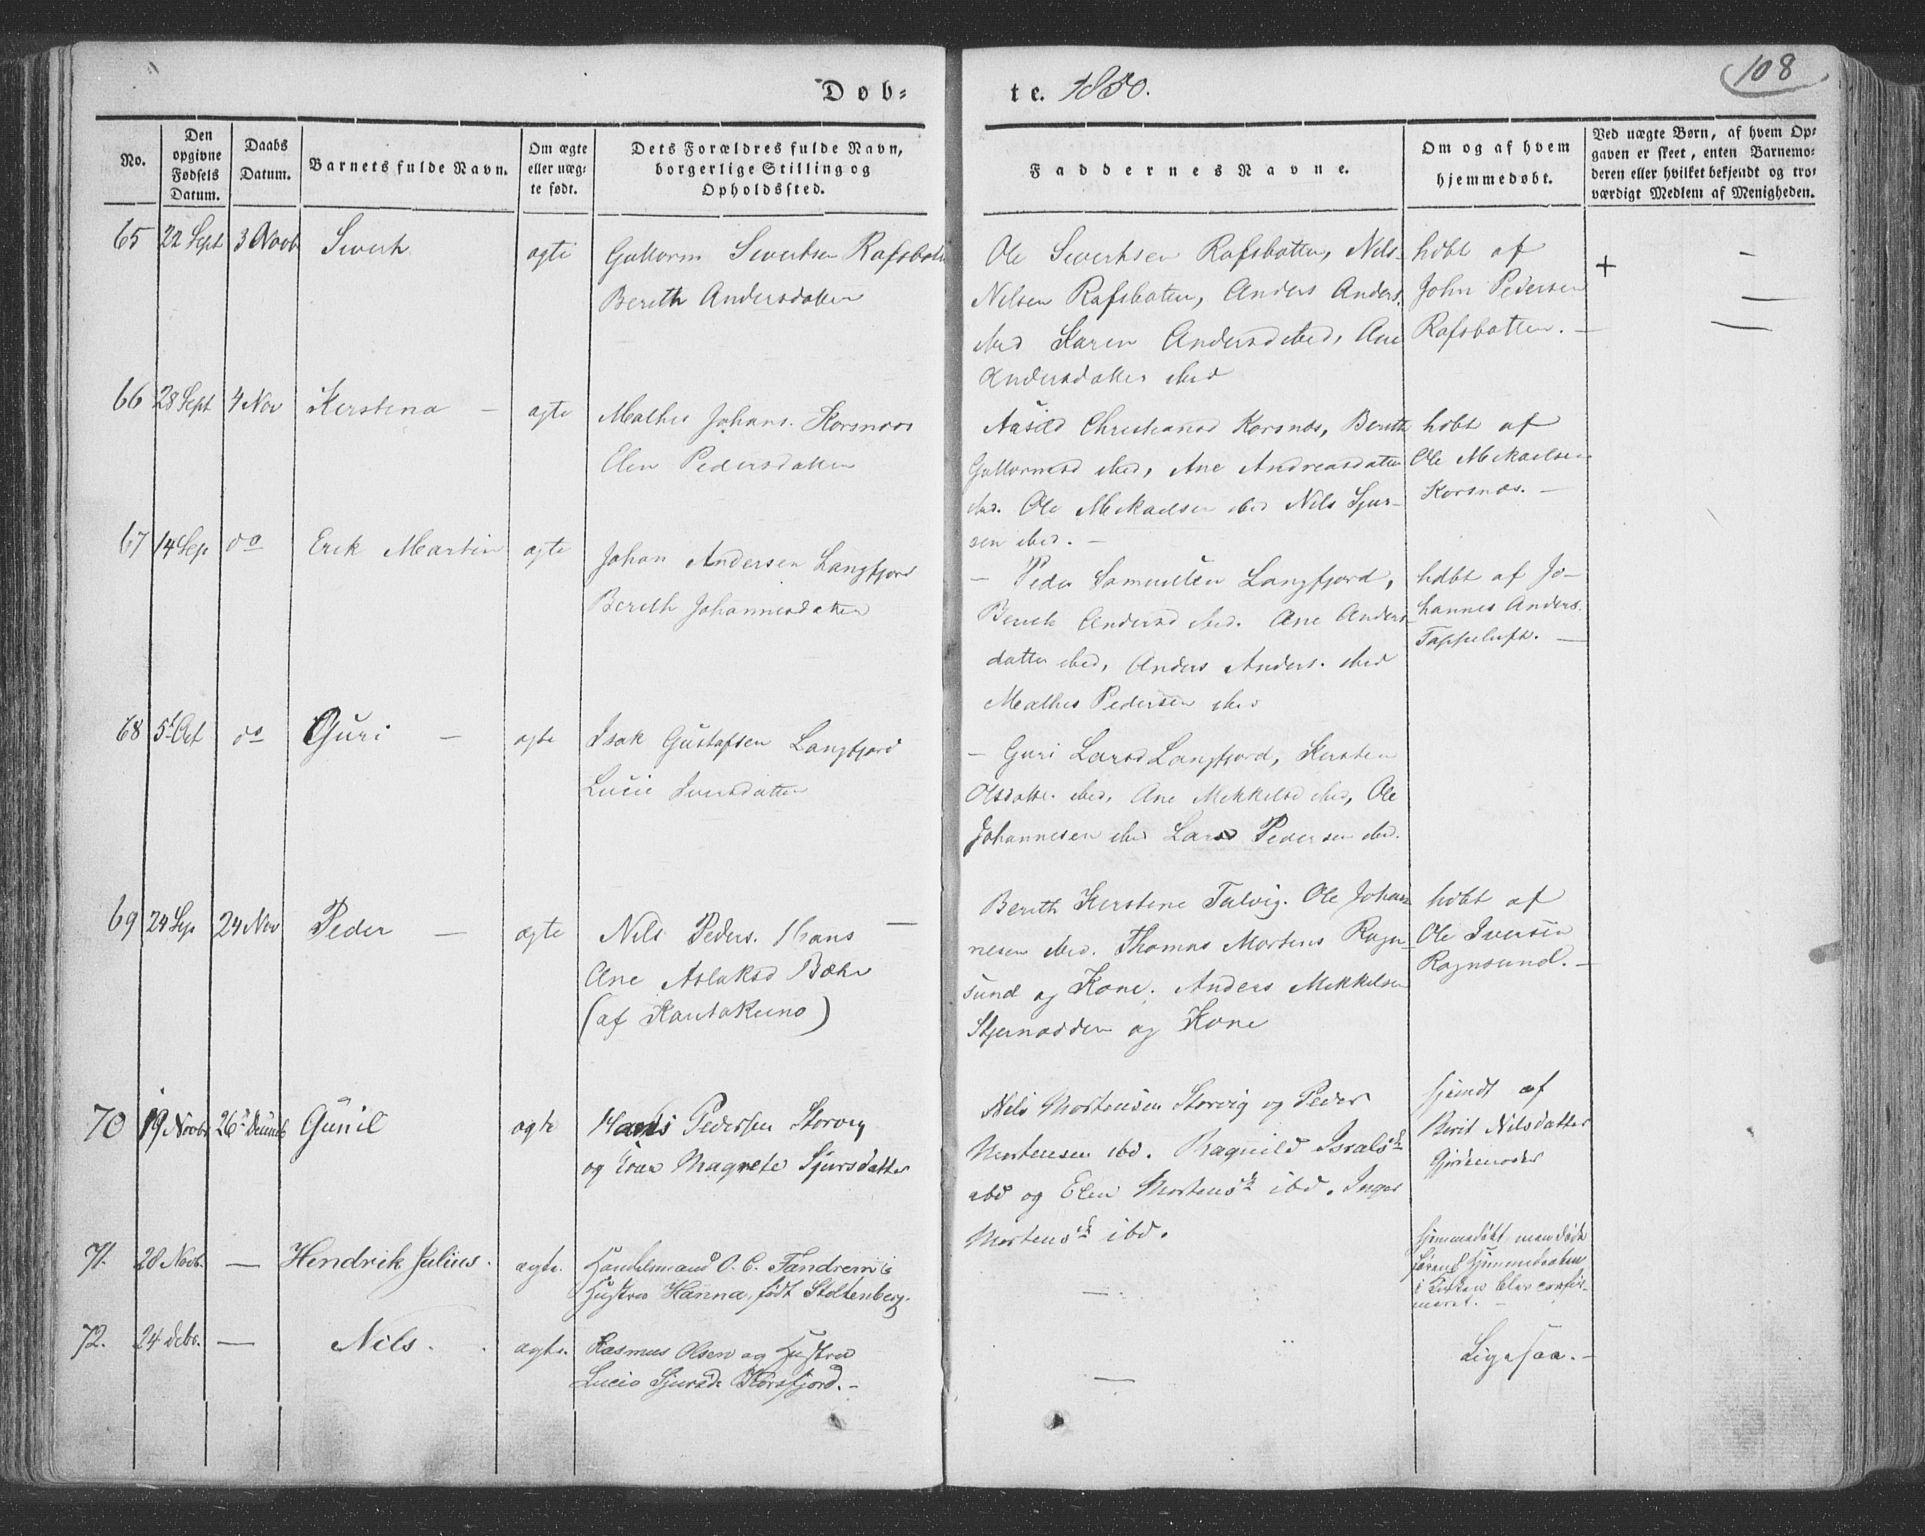 108
Døb-
te. 1850.
No.
Den opgivne Fødsels Datum.
Daabs Datum.
Barnets fulde Navn.
Om ægte eller uægte født.
Dets Forældres fulde Navn, borgerlige Stilling og Opholdssted.
Faddernes Navne.
Om og af hvem hjemmedøbt.
Ved uægte Børn, af hvem Opgaven er skeet, enten Barnemoderen eller hvilket bekjendt og troværdigt Medlem af Menigheden.
65 22 Sept 3 Novb Sivert ægte
Guttorm Sivertsen Rafsbotn
Bereth Andersdatter
Ole Sivertsen Rafsbotten, Nils
Nilsen Rafsbotten, Anders Anders.
ibid Karen Andersd ibid, Ane
Andersdatter ibid
hdbt af
John Pedersen
Rafsbotten. —
+
66 28 Sept 4 Nov Kerstena — ægte
Mathis Johans. Korsnæs
Elen Pedersdatter
Aasild Christiansd Korsnæs, Bereth
Guttormsd ibid, Ane Andreasdatter
ibid. Ole Mikaelsen ibid Nils Sjur-
sen ibid. —
hdbt af
Ole Mikaelsen
Korsnæs. —
67 14 Sep do Erik Martin ægte
Johan Andersen Langfjord
Bereth Johannesdatter
— Peder Samuelsen Langfjord,
Bereth Andersd ibid. Ane Anders
datter ibid, Anders Anders. ibid
Mathis Pedersen ibid
hdbt af Jo-
hannes Anders.
Tappeluft. —
68 5t Oct do Guri — ægte
Isak Gustafsen Langfjord
Lucie Iversdatter
— Guri Larsd Langfjord, Kersten
Olsdatter ibid, Ane Mikkelsd ibid, Ole
Johannesen ibid Lars Pedersen ibid.
69 24 Sep 24 Nov Peder — ægte
Nils Peders. Hans —
Ane Aslaksd Bæhr
(af Kautokeino)
Bereth Kerstene Talvig. Ole Johan
nesen ibid. Thomas Mortens Rogn-
sund og Kone. Anders Mikkelsen
Stjernodden og Kone
hdbt af
Ole Iversen
Rognsund. —
70 19 Novbr 26 Decemb Gunil ægte
Hans Pedersen Storvig
og Kone Magrete Sjursdatter
Nils Mortensen Storvig og Peder
Mortensen ibd. Ragnild Israelsd
ibd og Elen Mortensd ibd. Inger
Mortensd ibd.
hjemdt af
Berit Nilsdatter
Gjordemoder
71. 28 Novb. — Hendrik Julius. ægte.
Handelsmand O. C. Fandrem &
Hustroe Hanna, født Stoltenberg.
—
hjemmedøbt men døde
førend Hjemmedaaben
i Kirken blev confir-
meret. —
72. 24 Debr. — Nils. ægte.
Rasmus Olsen og Hustroe
Lucie Sjursdr Korsfjord. —
—
Ligesaa. —